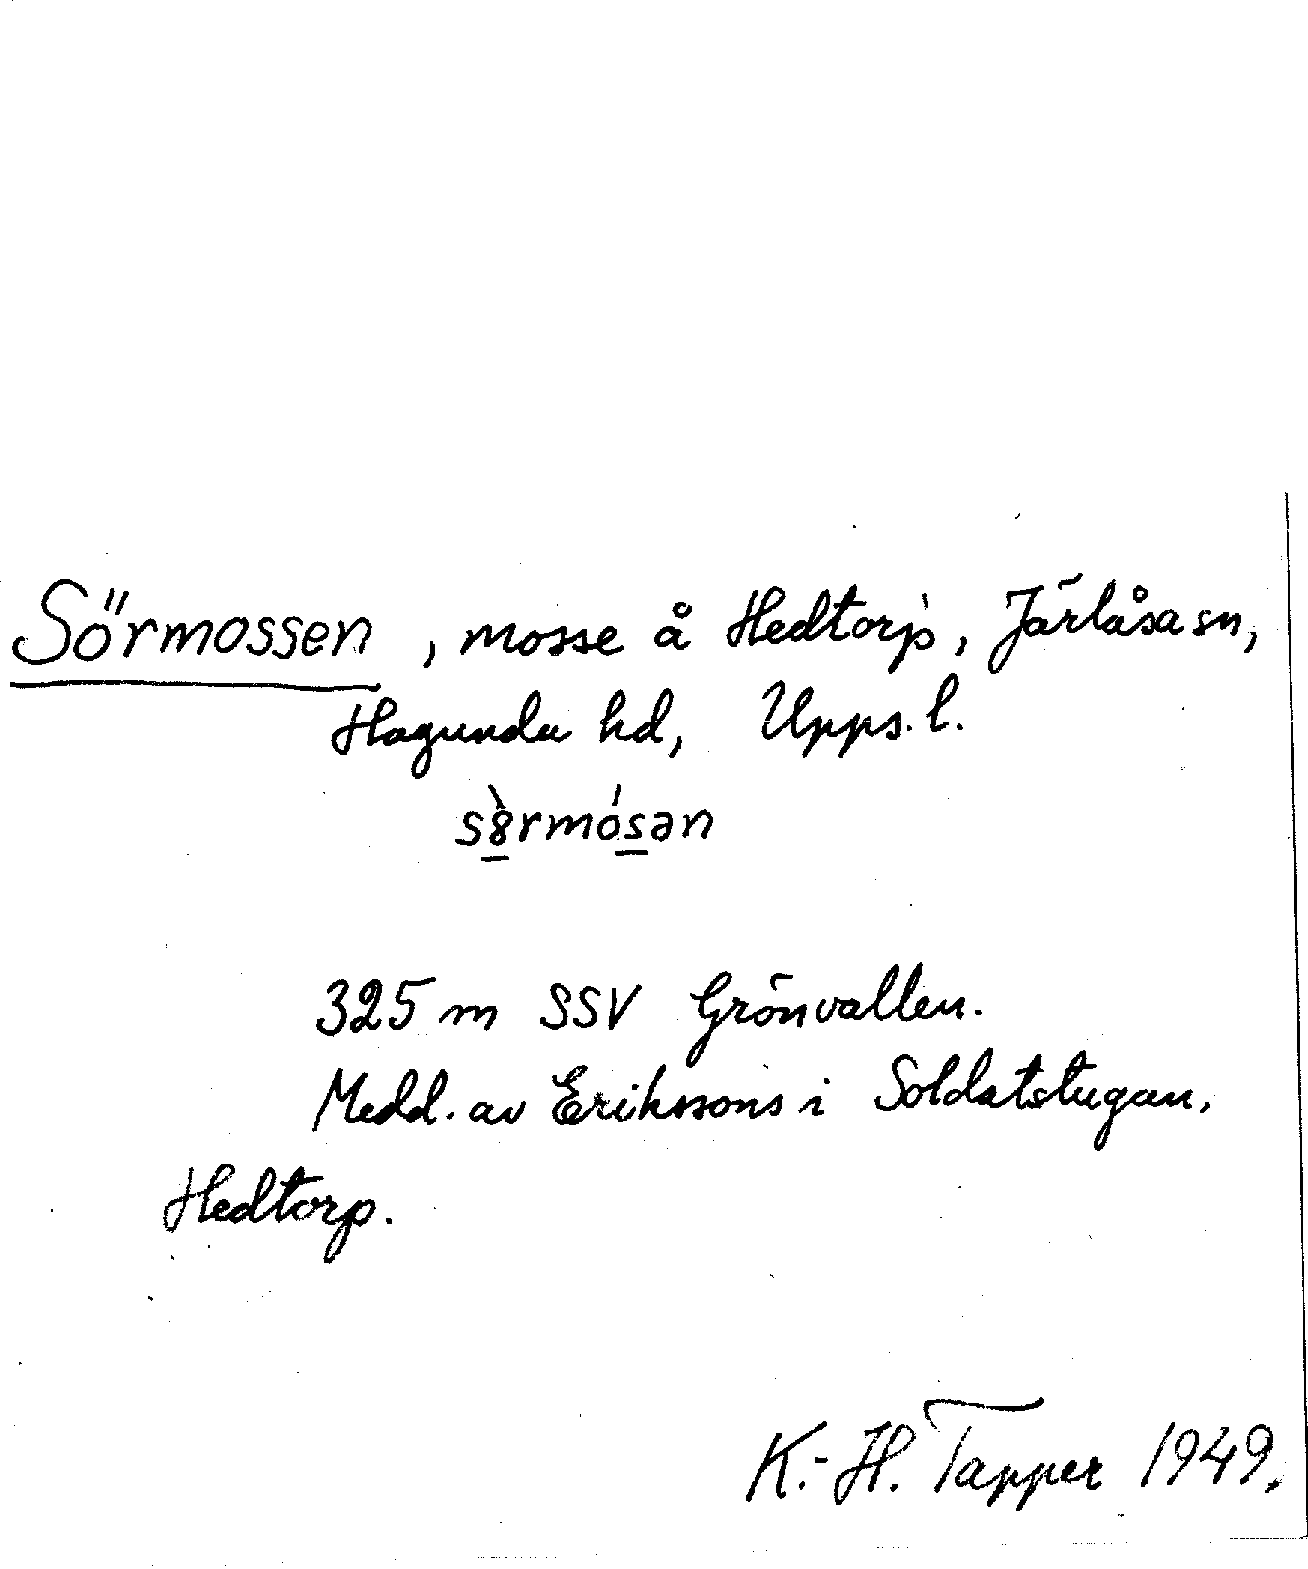 Sörmossen, mosse å Hedtorp, Järlåsa sn,
Hagunda hd, Upps. l.
s8̀rmósən
325 m SSV Grönvallen.
Medd. av Erikssons i Soldatstugan,
Hedtorp.
K.-H. Tapper 1949.